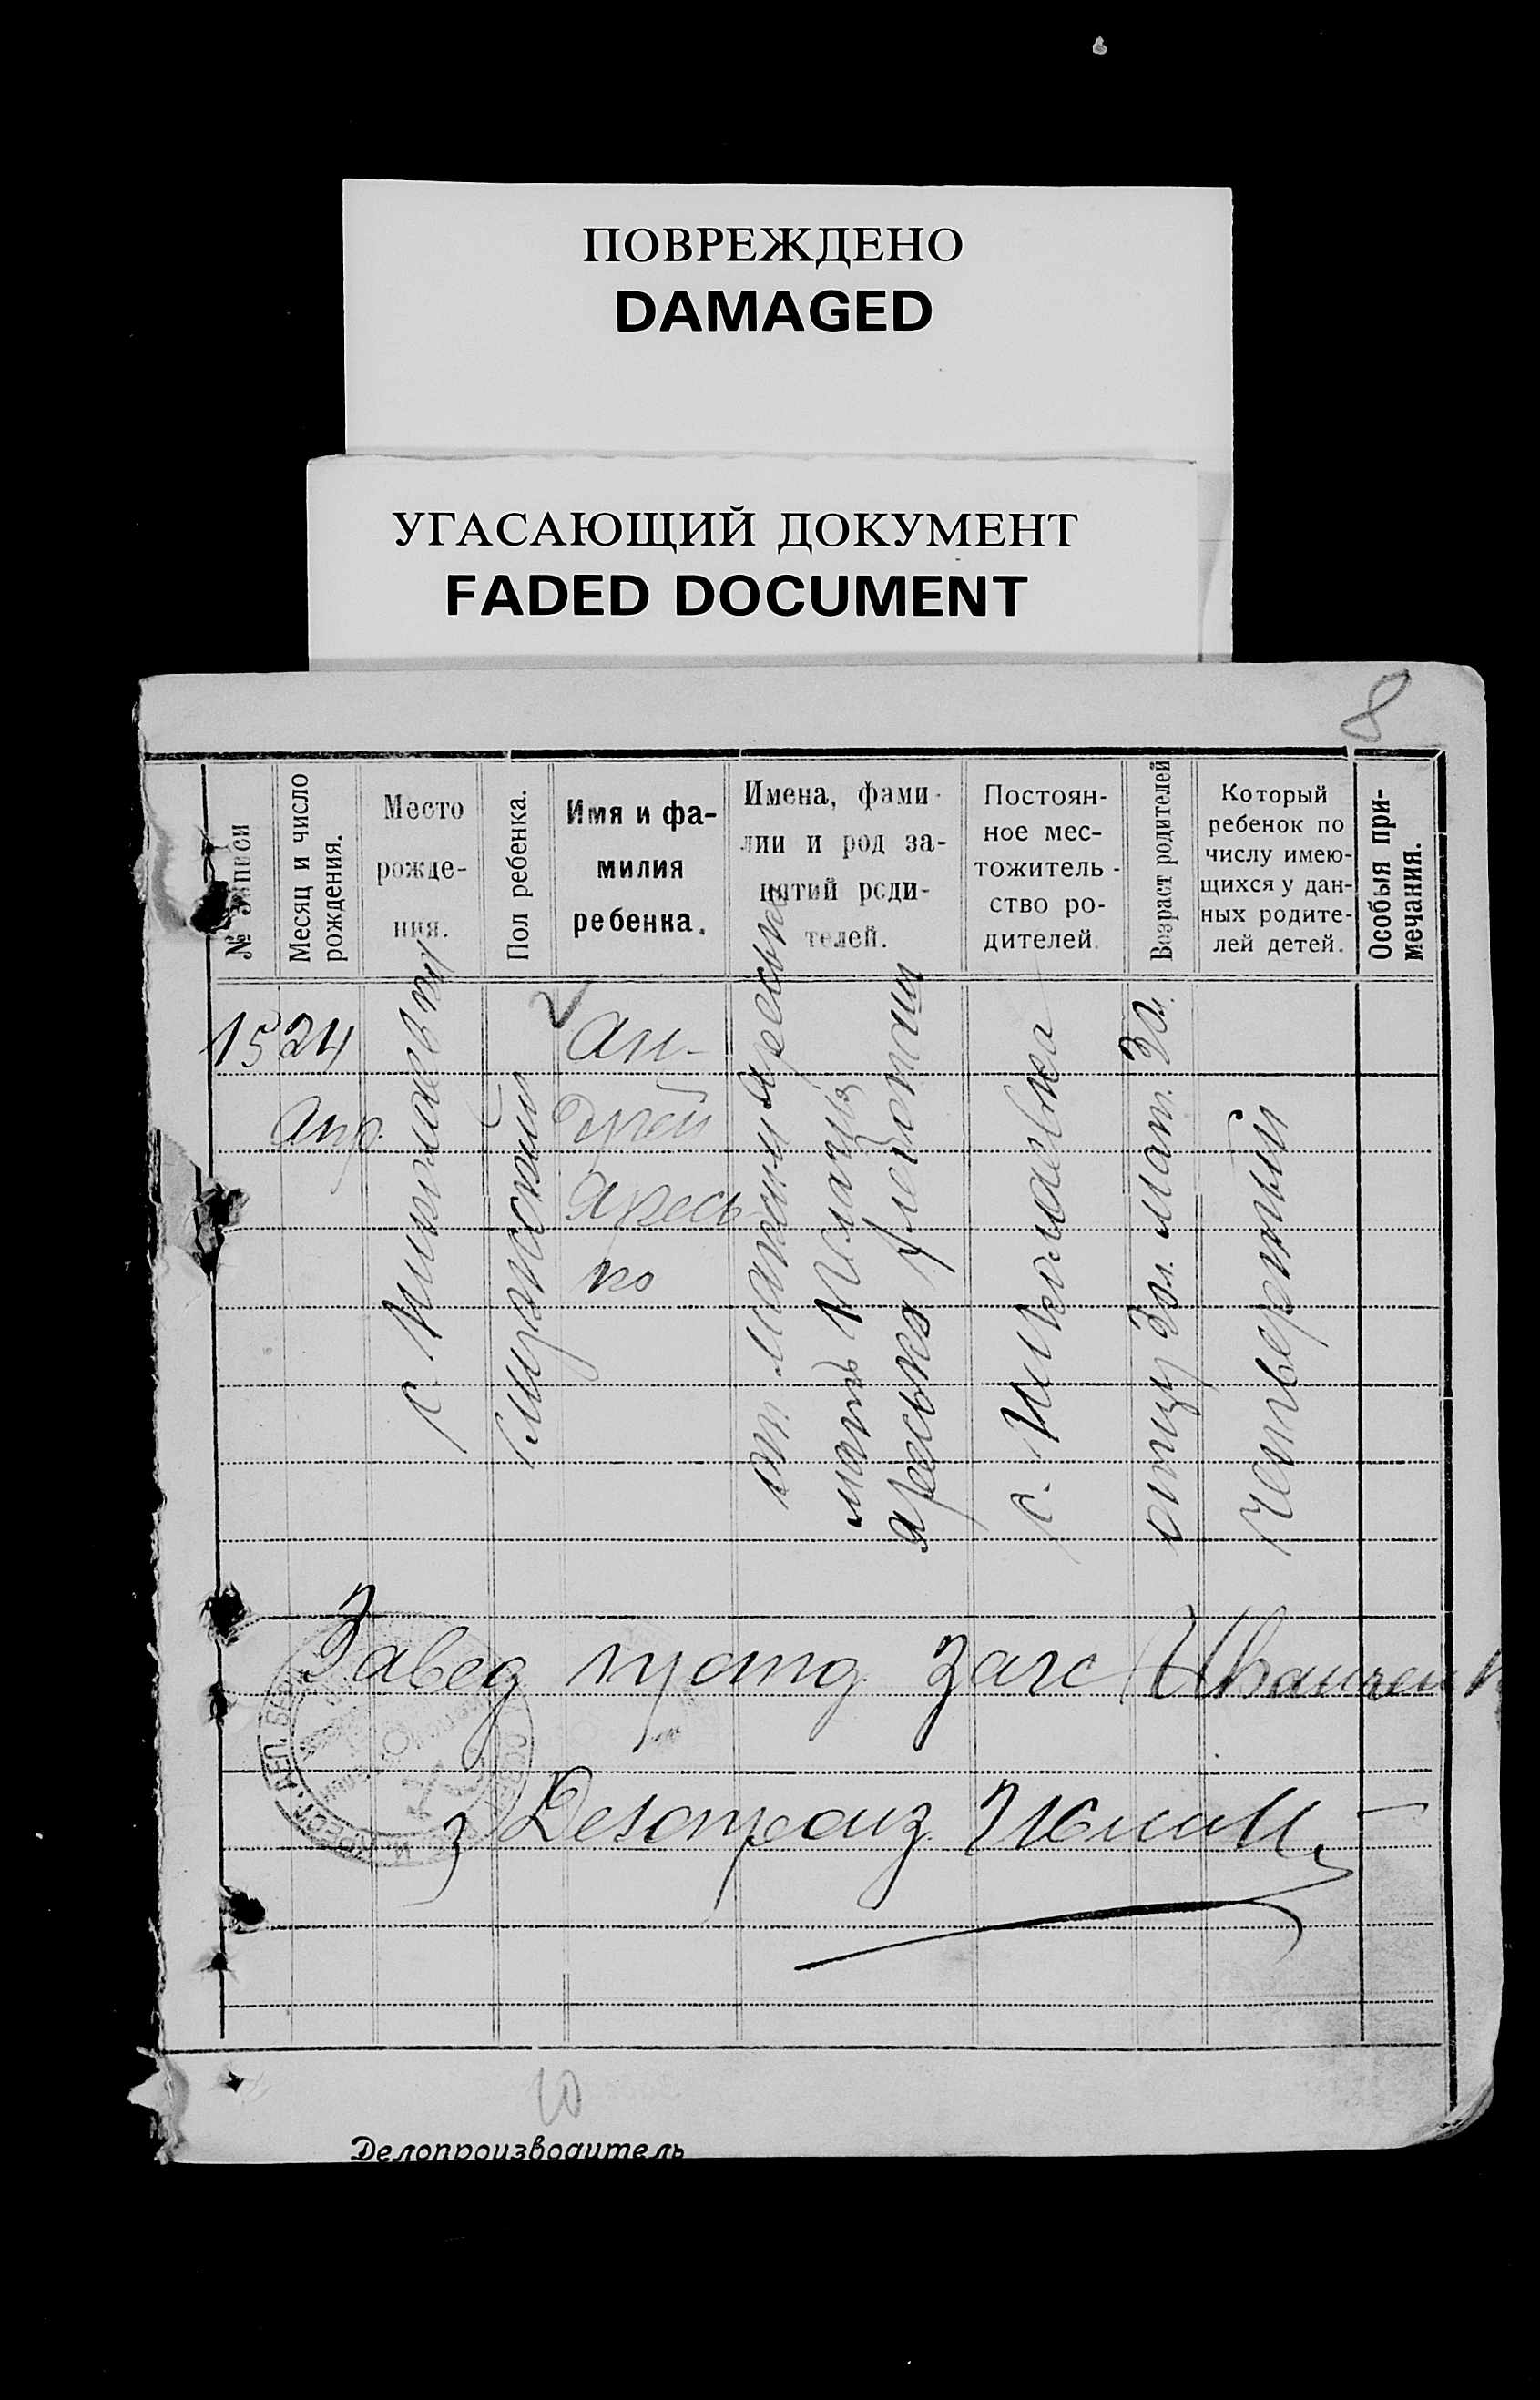 ПОВРЕЖДЕНО
DAMAGED
УГАСАЮЩИЙ ДОКУМЕНТ
FADED DOCUMENT
8
№ записи
Месяц и число
рождения.
Место
рожде-
ния.
Пол ребенка.
Имя и фа-
милия
ребенка.
Имена, фами-
лии и род за-
нятий роди-
телей.
Постоян-
ное мес-
тожитель-
ство ро-
дителей.
Возраст родителей
Который
ребенок по
числу имею-
щихся у дан-
ных родите-
лей детей.
Особыя при-
мечания.
15
24
Апр.
с. Николаевка
Мужской
Ан-
дрей
Яресь
ко
от. Максим Яресько
мать
Яресько
с. Николаевка
отцу 30л. мат. 30л.
Четвертый
Завед загс Иванченк
10
Делопроизводитель